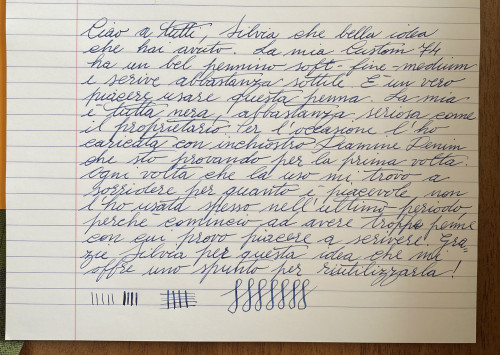 Ciao a tutti, Silvia che bella idea
che hai avuto. La mia Custom 74
ha un bel pennino soft-fine-medium
e scrive abbastanza sottile. È un vero
piacere usare questa penna. La mia
è tutta nera, abbastanza seriosa come
il proprietario. Per l'occasione l'ho
caricata con inchiostro Diamine Denim
che sto provando per la prima volta.
Ogni volta che la uso mi trovo a
sorridere per quanto è piacevole non
l'ho usata spesso nell'ultimo periodo,
perché comincio ad avere troppe penne
con cui provo piacere a scrivere! Gra-
zie Silvia per questa idea che mi
offre uno spunto per riutilizzarla!